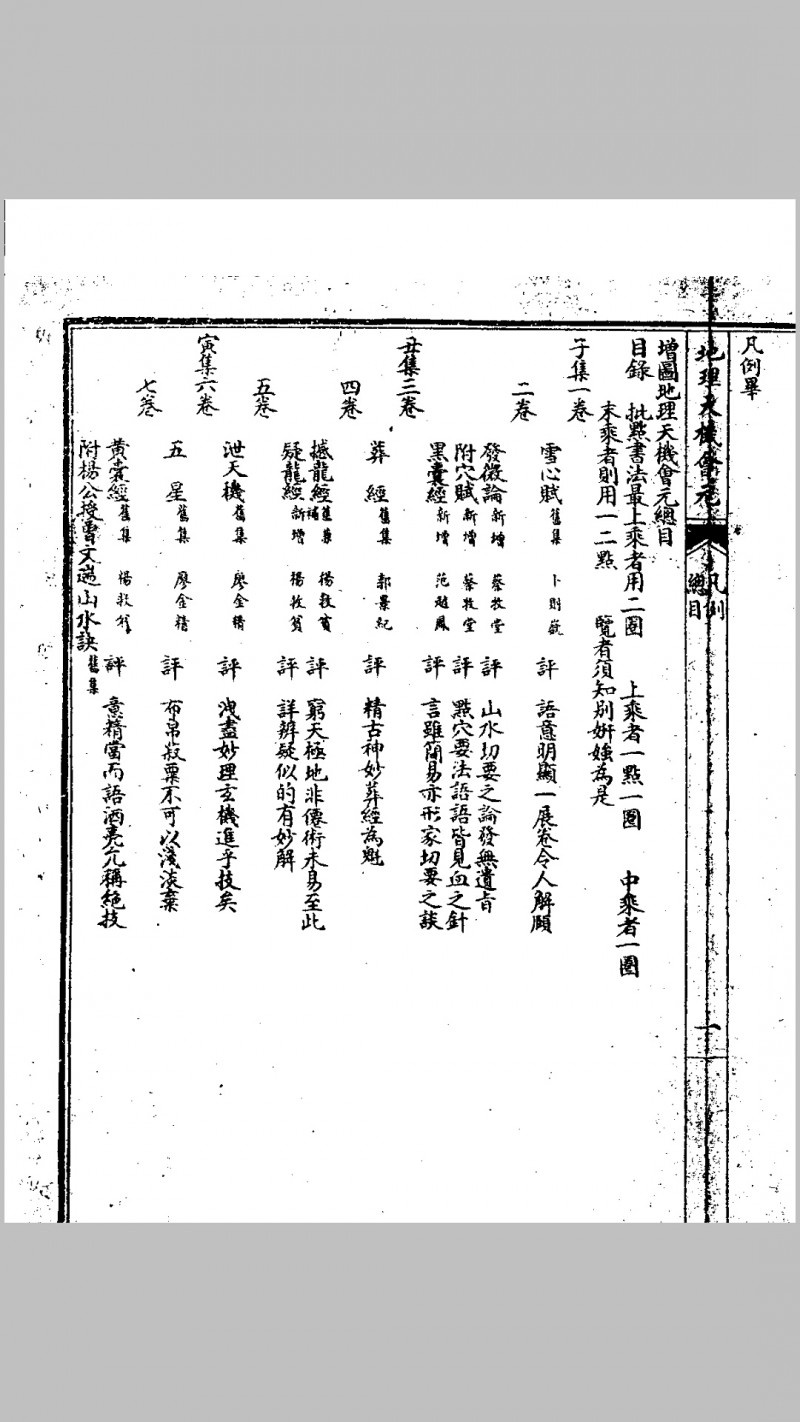 凡例畢
地理天機會元 凡例 總目 一
增圖地理天機會元總目
目錄 批點書法最上乘者用二圈 上乘者一點一圈 中乘者一圈
末乘者則用一二點 覽者須知別妍媸為是
子集一卷
雪心賦 舊集 卜則巍 評 語意明顯一展卷令人解頤
二卷
發微論 新增 蔡牧堂 評 山水切要之論發無遺旨
附穴賦 新增 蔡牧堂 評 點穴要法語語皆見血之針
黑囊經 新增 范越鳳 評 言雖簡易亦形家切要之談
丑集三卷
葬經 舊集 郭景紀 評 精古神妙葬經為魁
四卷
撼龍經 舊集補 楊救貧 評 窮天極地非僊術未易至此
疑龍經 新增 楊救貧 評 詳辨疑似的有妙解
五卷
泄天機 舊集 廖金精 評 洩盡妙理玄機進乎技矣
寅集六卷
五星 舊集 廖金精 評 布帛菽粟不可以淺淡棄
七卷
黃囊經 舊集 楊救貧 評 意精當而語洒亮允稱絕技
附楊公授曾文辿山水訣 舊集